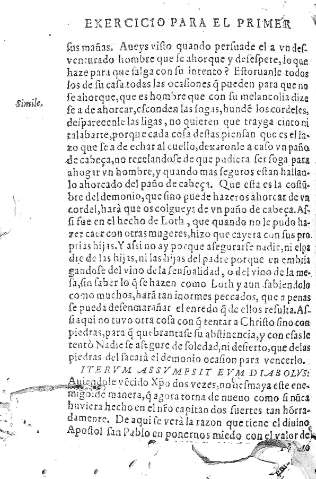 EXERCICIO PARA EL PRIMER
sus mañas. Aueys visto quando persuade el a vn des-
venturado hombre que se ahorque y desespere, lo que
haze para que salga con su intento? Estoruanle todos
los de su casa todas las ocasiones q̃ pueden para que no
se ahorque, que es hombre que con su melancolia dize
Simile.
se a de ahorcar, esconden las sogas, hunde los cordeles,
desparecenle las ligas, no quieren que trayga cinto ni
talabarte, porque cada cosa destas piensan que es el la-
zo que se a de echar al cuello, dexaronle a caso vn paño
de cabeça, no recelandose de que pudiera ser soga para
ahogar vn hombre, y quando mas seguros estan hallan-
lo ahorcado del paño de cabeça. Que esta es la costū-
bre del demonio, que sino puede hazeros ahorcar de vn
cordel, hará que os colgueys de vn paño de cabeça. As-
si fue en el hecho de Loth, que quando no le pudo ha-
zer caer con otras mugeres, hizo que cayera con sus pro
prias hijas. Y assi no ay porque asegurarse nadie, ni el pa
dre de las hijas, ni las hijas del padre porque en embria
gandose del vino de la sensualidad, o del vino de la me-
sa, sin saber lo q̃ se hazen como Loth y aun sabiendolo
como muchos, harã tan inormes peccados, que a penas
se pueda desenmarañar el enredo q̃ de ellos resulta. As-
si aqui no tuvo otra cosa con q̃ tentar a Christo sino con
piedras, para q̃ quebrantasse su abstinencia, y con essas le
tentò Nadie se assegure de soledad, ni desierto, que de las
piedras del sacará el demonio ocasion para vencerlo.
ITERVM ASSVMPSIT EVM DIABOLVS:
Auiendole vẽcido Xp̃o dos vezes, no desmaya este ene-
migo de manera, q̃ agora torna de nueuo como si nũca
huviera hecho en el nr̃o capitan dos suertes tan hõrra-
damente. De aqui se verà la razon que tiene el diuino
Apostol san Pablo en ponernos miedo con el valor de